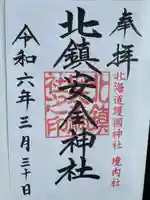 奉拝
北海道護國神社 境内社
北鎮安全神社
令和六年三月三十日